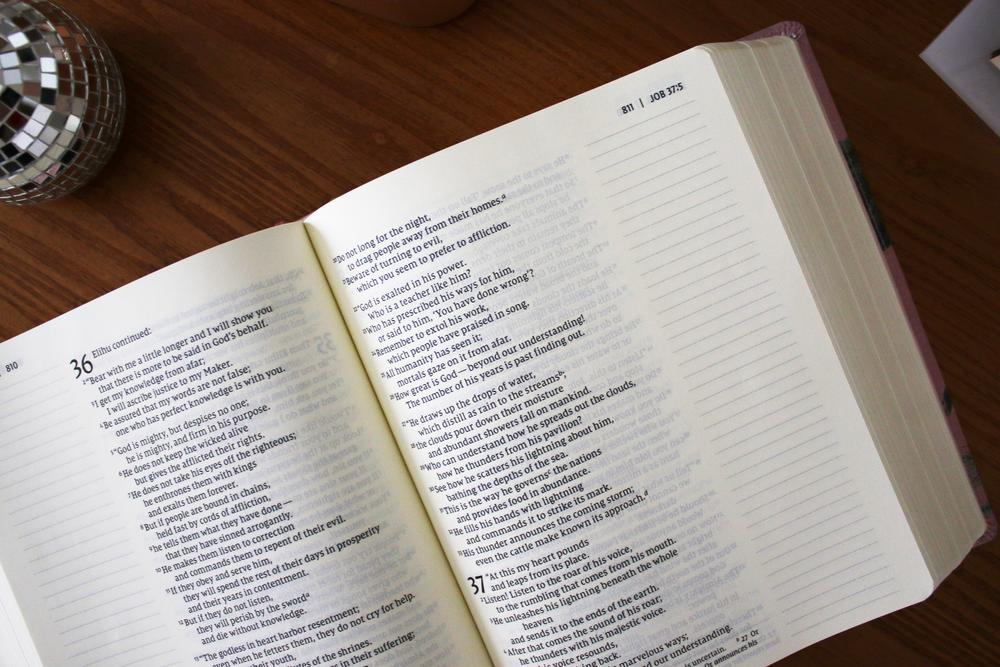 810
36
Elihu continued:
2 "Bear with me a little longer and I will show you
that there is more to be said in God's behalf.
3 I get my knowledge from afar;
I will ascribe justice to my Maker.
4 Be assured that my words are not false;
one who has perfect knowledge is with you.
5 "God is mighty, but despises no one;
he is mighty, and firm in his purpose.
6 He does not keep the wicked alive
but gives the afflicted their rights.
7 He does not take his eyes off the righteous;
he enthrones them with kings
and exalts them forever.
8 But if people are bound in chains,
held fast by cords of affliction,
9 he tells them what they have done—
that they have sinned arrogantly.
10 He makes them listen to correction
and commands them to repent of their evil.
11 If they obey and serve him,
they will spend the rest of their days in prosperity
and their years in contentment.
12 But if they do not listen,
they will perish by the sword a
and die without knowledge.
13 "The godless in heart harbor resentment;
even when he fetters them, they do not cry for help.
their youth,
of the shrines.
in their suffering;
811 | JOB 37:5
20 Do not long for the night,
to drag people away from their homes. a
21 Beware of turning to evil,
which you seem to prefer to affliction.
22 "God is exalted in his power.
Who is a teacher like him?
23 Who has prescribed his ways for him,
or said to him, 'You have done wrong'?
24 Remember to extol his work,
which people have praised in song.
25 All humanity has seen it;
mortals gaze on it from afar.
26 How great is God—beyond our understanding!
The number of his years is past finding out.
27 "He draws up the drops of water,
which distill as rain to the streams b;
28 the clouds pour down their moisture
and abundant showers fall on mankind.
29 Who can understand how he spreads out the clouds,
how he thunders from his pavilion?
30 See how he scatters his lightning about him,
bathing the depths of the sea.
31 This is the way he governs the nations
and provides food in abundance.
32 He fills his hands with lightning
and commands it to strike its mark.
33 His thunder announces the coming storm;
even the cattle make known its approach. d
37
"At this my heart pounds
and leaps from its place.
2 Listen! Listen to the roar of his voice,
to the rumbling that comes from his mouth.
3 He unleashes his lightning beneath the whole
heaven
and sends it to the ends of the earth.
4 After that comes the sound of his roar;
he thunders with his majestic voice.
his voice resounds,
back.
marvelous ways;
our understanding.
b 27 Or
is uncertain.
announces his